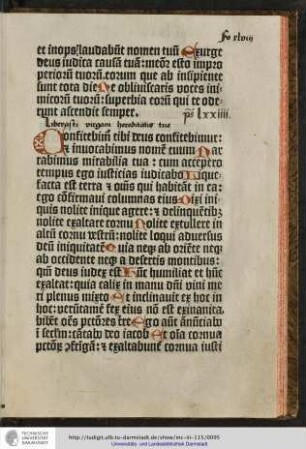 fo xlviij
et inops laudabūt nomen tuū Exurge
deus iudica causā tuā: memor esto impro
perioꝝ tuoꝝ. eorum que ab insipiente
sunt tota die Ne obliuiscaris voces ini
micorū tuorū: superbia eorū qui te ode
runt ascendit semper.
ps lxxiiij.
virgam hereditatis tue
Confitebimʳ tibi deus confitebimur:
et inuocabimus nomē tuum Nar
rabimus mirabilia tua: cum accepero
tempus ego iusticias iudicabo Lique
facta est terra et om̄s qui habitāt in ea:
ego cōfirmaui columnas eius Dixi ini
quis nolite inique agere: et delinquētibꝫ
nolite exaltare cornu Nolite extollere in
altū cornu vestrū: nolite loqui aduersus
deū iniquitatē Quia neqꝫ ab oriēte neqꝫ
ab occidente neqꝫ a desertis montibus:
qm̄ deus iudex est Hūc humiliat et hūc
exaltat: quia calix in manu dn̄i vini me
ri plenus mixto Et inclinauit ex hoc in
hoc: verūtamē fex eius nō est exinanita.
bibēt om̄s pctōres tre Ego aūt ānūciabo
in sectm: cātabo deo iacob Et om̄ia cornua
pctōꝝ ꝯfrigā: et exaltabunt cornua iusti
TECHNISCHE
UNIVERSITÄT
DARMSTADT
http://tudigit.ulb.tu-darmstadt.de/show/inc-iii-125/0095
Universitäts- und Landesbibliothek Darmstadt